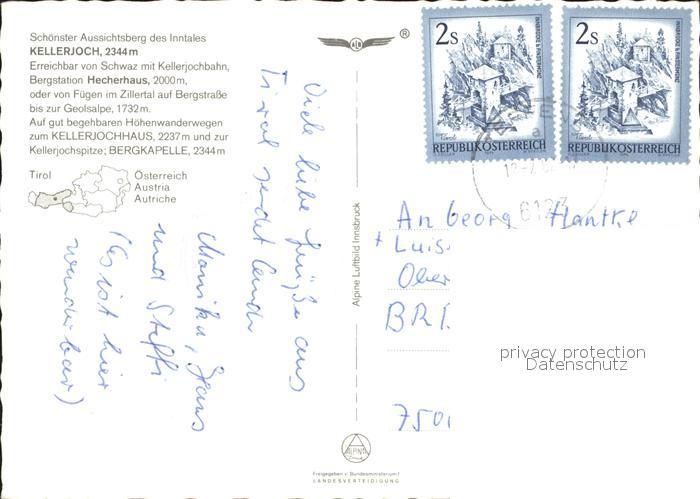 Schönster Aussichtsberg des Inntales
KELLERJOCH, 2344 m
Erreichbar von Schwaz mit Kellerjochbahn,
Bergstation Hecherhaus, 2000 m,
oder von Fügen im Zillertal auf Bergstraße
bis zur Geolsalpe, 1732 m.
Auf gut begehbaren Höhenwanderwegen
zum KELLERJOCHHAUS, 2237 m und zur
Kellerjochspitze; BERGKAPELLE, 2344 m
Tirol
Österreich
Austria
Autriche
Viele liebe Grüße aus
Tirol sendet Euch
Monika, Hans
und Steffi
(Es ist hier
wunderbar)
Alpine Luftbild Innsbruck
®
2s
REPUBLIK ÖSTERREICH
2s
REPUBLIK ÖSTERREICH
An Georg Hantke
+ Luis
Ober
BRD
750
privacy protection
Datenschutz
ALPINE
Freigegeben v. Bundesministerium f.
LANDESVERTEIDIGUNG